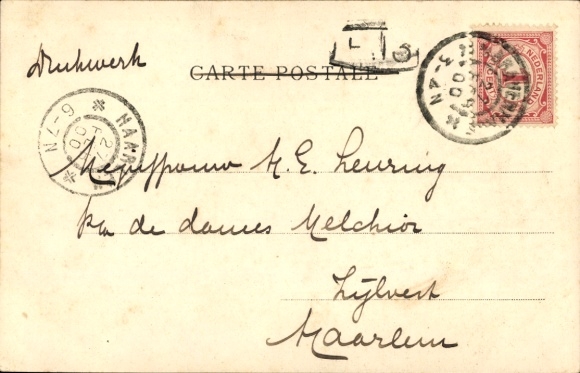 Drukwerk
CARTE POSTALE
L S
3-4 N
NEDERLAND
1
HAARLEM
27
00
6-7 N
Mejuffrouw M. E. Leuring
p/a de dames Melchior
Zijlvest
Haarlem